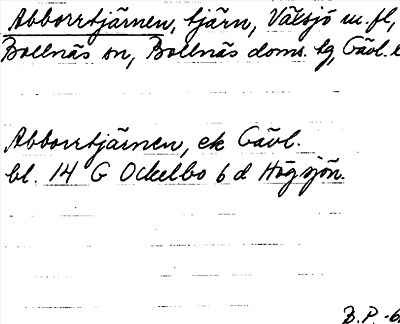 Abborrtjärnen, tjärn, Välsjö m.fl,
Bollnäs sn, Bollnäs doms. tg, Gävl. l
Abborrtjärnen, ek Gävl.
bl. 14 G Ockelbo 6 d Högsjön.
B.P. -6